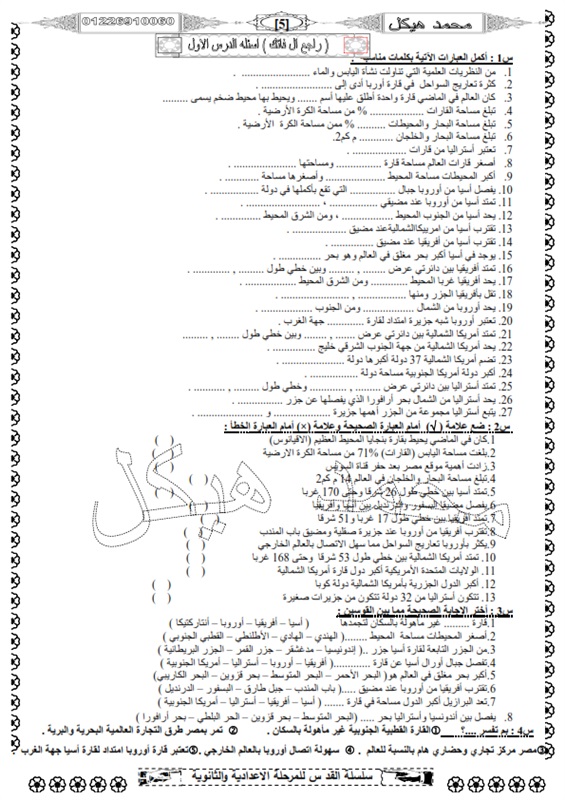 محمد هيكل
[5]
01226910060
( راجع آل فاتك ) أسئلة الدرس الأول
س1 : أكمل العبارات الآتية بكلمات مناسب .
1. من النظريات العلمية التي تناولت نشأة اليابس والماء ................... .
2. كثرة تعاريج السواحل في قارة أوربا أدى إلى ................... .
3. كان العالم في الماضي قارة واحدة أطلق عليها أسم ........ ويحيط بها محيط ضخم يسمى ........
4. تبلغ مساحة القارات .................. % من مساحة الكرة الأرضية .
5. تبلغ مساحة البحار والمحيطات .......... % ممن مساحة الكرة الأرضية .
6. تبلغ مساحة البحار والخلجان ............ م كم2.
7. تعتبر أستراليا من قارات ................ .
8. أصغر قارات العالم مساحة قارة .............. ومساحتها ............... .
9. أكبر المحيطات مساحة المحيط .................. وأصغرها مساحة ............ .
10. يفصل أسيا من أوروبا جبال ................ التي تقع بأكملها في دولة ............... .
11. تمتد أسيا من أوروبا عند مضيقي ................ ، ...................... .
12. يحد أسيا من الجنوب المحيط .............. ، ومن الشرق المحيط .............
13. تقترب أسيا من امريكاالشماليةعند مضيق ................ .
14. تقترب أسيا من أفريقيا عند مضيق ................ .
15. يوجد في أسيا أكبر بحر مغلق في العالم وهو بحر .............. .
16. تمتد أفريقيا بين دائرتي عرض ....... , ........ وبين خطي طول ......... , ......... .
17. يحد أفريقيا غربا المحيط ............. ومن الشرق المحيط ................. .
18. تقل بأفريقيا الجزر ومنها .............. , ............... .
19. يحد أوروبا من الشمال ................ ومن الجنوب ................ .
20. تعتبر أوروبا شبه جزيرة امتداد لقارة ............ جهة الغرب .
21. تمتد أمريكا الشمالية بين دائرتي عرض ...... , ........ وبين خطي طول ........ , .........
22. يحد أمريكا الشمالية من جهة الجنوب الشرقي خليج ............ .
23. تضم أمريكا الشمالية 37 دولة أكبرها دولة ................ .
24. أكبر دولة أمريكا الجنوبية مساحة دولة ................ .
25. تمتد أستراليا بين دائرتي عرض ........ , .......... وخطي طول .......... , ........... .
26. يحد أستراليا من الشمال بحر أرافورا الذي يفصلها عن جزر ................ .
27. يتبع أستراليا مجموعة من الجزر أهمها جزيرة ................ و ................ .
س2 : ضع علامة (√) أمام العبارة الصحيحة وعلامة (×) أمام العبارة الخطأ :
1.كان في الماضي يحيط بقارة بنجايا المحيط العظيم (الاقيانوس) ( )
2.بلغت مساحة اليابس (القارات) 71% من مساحة الكرة الارضية ( )
3.زادت أهمية موقع مصر بعد حفر قناة السويس ( )
4.تبلغ مساحة البحار والخلجان في العالم 14 م كم2 ( )
5.تمتد أسيا بين خطي طول 26 شرقا وحتى 170 غربا ( )
6.يفصل مضيقا البسفور والدردنيل بين أسيا وأفريقيا ( )
7.تمتد أفريقيا بين خطي طول 17 غربا و51 شرقا ( )
8.تقترب أفريقيا من أوروبا عند جزيرة صقلية ومضيق باب المندب ( )
9.يكثر بأوروبا تعاريج السواحل مما سهل الاتصال بالعالم الخارجي ( )
10. تمتد أمريكا الشمالية بين خطي طول 53 شرقا وحتى 168 غربا ( )
11. الولايات المتحدة الأمريكية أكبر دول قارة أمريكا الشمالية ( )
12. أكبر الدول الجزرية بأمريكا الشمالية دولة كوبا ( )
13. تتكون أستراليا من 32 دولة تتكون من جزيرات صغيرة ( )
س3 : أختر الإجابة الصحيحة مما بين القوسين :
1.قارة ......... غير مأهولة بالسكان لتجمدها ( أسيا – أفريقيا – أوروبا – أنتاركتيكا )
2.أصغر المحيطات مساحة المحيط ........( الهندي – الهادي – الأطلنطي – القطبي الجنوبي )
3.من الجزر التابعة لقارة أسيا جزر ..( إندونيسيا – مدغشقر – جزر القمر – الجزر البريطانية )
4.تفصل جبال أورال أسيا عن قارة............( أفريقيا – أوروبا – أستراليا – أمريكا الجنوبية )
5.أكبر بحر مغلق في العالم هو( البحر الأحمر – البحر المتوسط – بحر قزوين – البحر الكاريبي)
6.تقترب أفريقيا من أوروبا عند مضيق .....( باب المندب – جبل طارق – البسفور – الدردنيل )
7.تعد البرازيل أكبر الدول مساحة في قارة ....... ( أسيا – أفريقيا – أستراليا – أمريكا الجنوبية )
8. يفصل بين أندونسيا وأستراليا بحر ..... (البحر المتوسط – بحر قزوين – الحر البلطي – بحر أرافورا )
س4 : بم تفسر ....؟ ①القارة القطبية الجنوبية غير مأهولة بالسكان . ② تمر بمصر طرق التجارة العالمية البحرية والبرية .
③مصر مركز تجاري وحضاري هام بالنسبة للعالم . ④ سهولة اتصال أوروبا بالعالم الخارجي .⑤تعتبر قارة أوروبا امتداد لقارة أسيا جهة الغرب
سلسلة القدس للمرحلة الاعدادية والثانوية